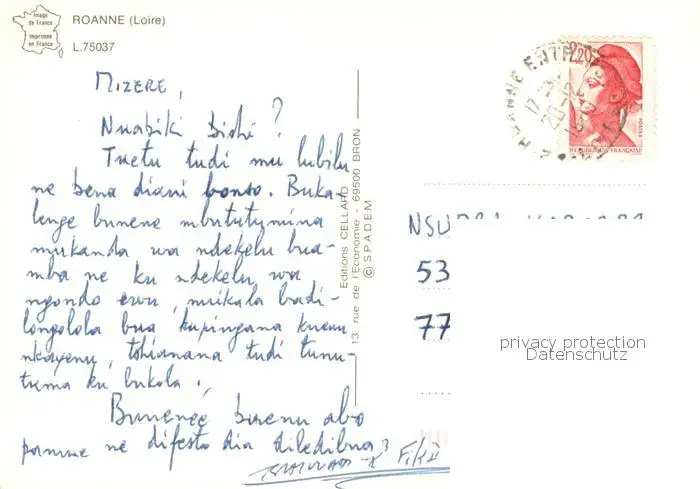 Image
de France
Imprimée
en France
ROANNE (Loire)
L.75037
Mizere,
Nuabiki bishi ?
Tuetu tudi mu lubilu
ne bena diani bonso. Buka-
lenge bunene mbututumina
mukanda wa ndekelu bua-
mba ne ku ndekelu wa
ngondo ewu, muikala badi-
longolola bua kupingana kuenu
nkayenu, tshianana tudi tunu-
tuma ku bukola.
Bunenee buenu abo
pamue ne difesto dia diledibua
Editions CELLARD
13, rue de l'Economie - 69500 BRON
© SPADEM
ROANNE
17 H
20-12
2,20
POSTES
REPUBLIQUE FRANÇAISE
53
77
privacy protection
Datenschutz